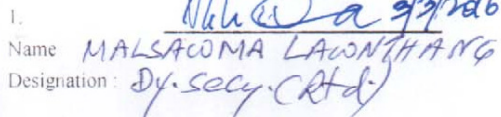 1. 3/3/2026
Name MALSAWMA LAWNTHANG
Designation : Dy. Secy. (Rtd.)